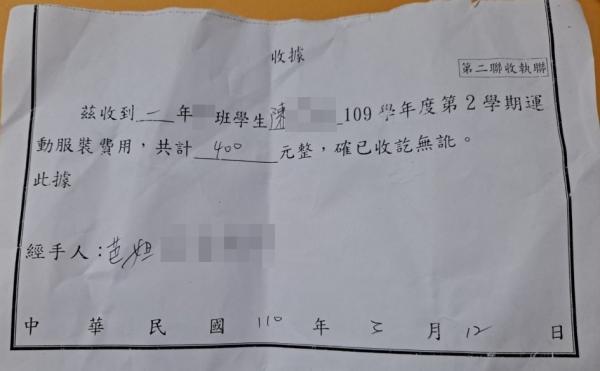 收據
第二聯收執聯
茲收到二年 班學生陳 109學年度第2學期運
動服裝費用,共計 400 元整,確已收訖無訛。
此據
經手人:芭妲
中華民國 110 年 三 月 12 日